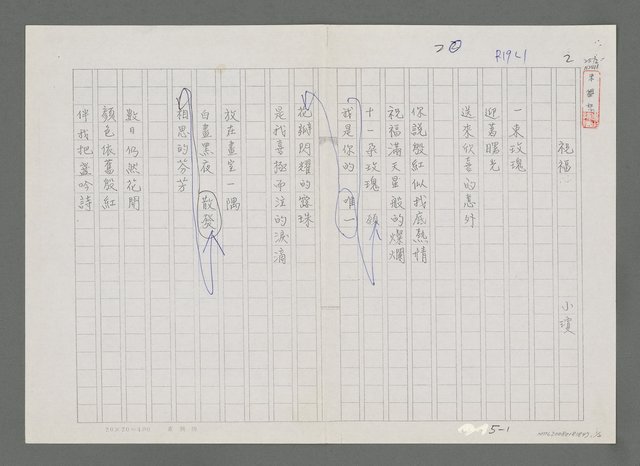 2
P19L1
祝福‥
小瓊
一束玫瑰
迎著曙光
送來欣喜的意外
你說殷紅似我底熱情
祝福滿天星般的燦爛
十一朵玫瑰
我是你的唯一
花瓣閃耀的露珠
是我喜極而泣的淚滴
放在畫室一隅
白晝黑夜
散發
相思的芬芳
數日仍然花開
顏色依舊殷紅
伴我把盞吟詩
20×20=400
5-1